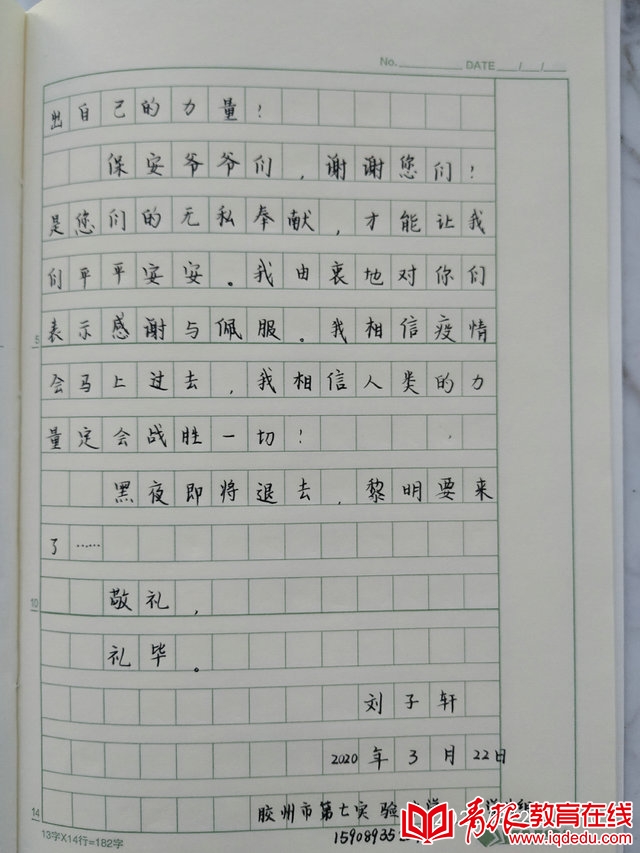 No. DATE / /
出自己的力量！
保安爷爷们，谢谢您们！
是您们的无私奉献，才能让我
们平平安安。我由衷地对你们
5 表示感谢与佩服。我相信疫情
会马上过去，我相信人类的力
量定会战胜一切！
黑夜即将退去，黎明要来
了……
10 敬礼，
礼毕。
刘子轩
2020年3月22日
14 胶州市第七实验
13字X14行=182字
15908935
青报教育在线
www.iqdedu.com